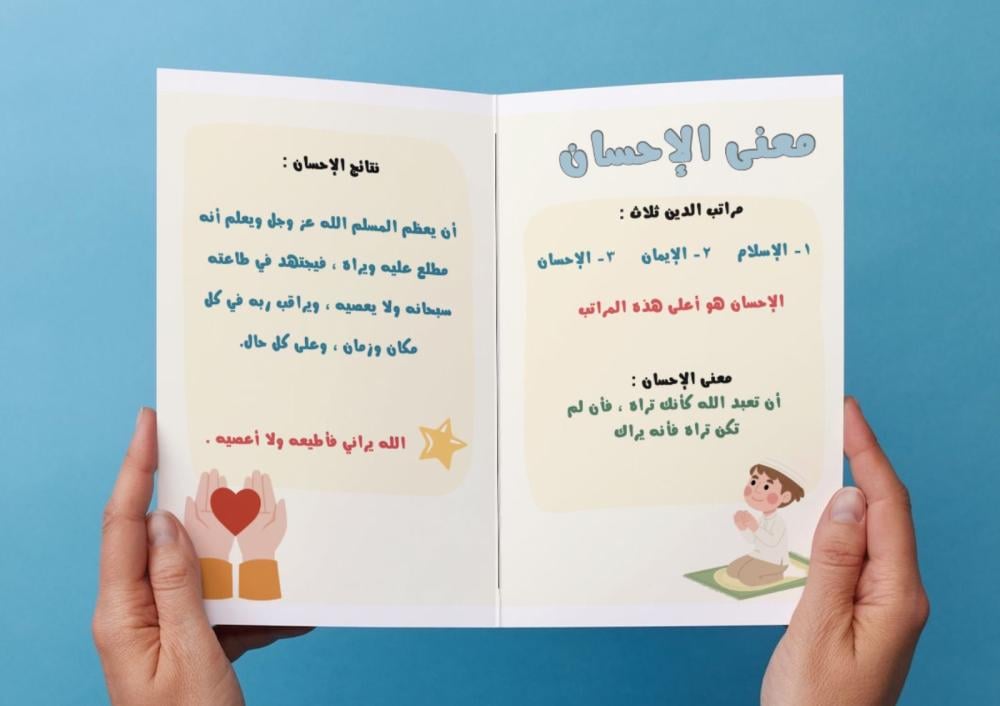 معنى الإحسان
مراتب الدين ثلاث :
١- الإسلام ٢- الإيمان ٣- الإحسان
الإحسان هو أعلى هذه المراتب
معنى الإحسان :
أن تعبد الله كأنك تراه ، فأن لم
تكن تراه فأنه يراك
نتائج الإحسان :
أن يعظم المسلم الله عز وجل ويعلم أنه
مطلع عليه ويراه ، فيجتهد في طاعته
سبحانه ولا يعصيه ، ويراقب ربه في كل
مكان وزمان ، وعلى كل حال.
الله يراني فأطيعه ولا أعصيه .